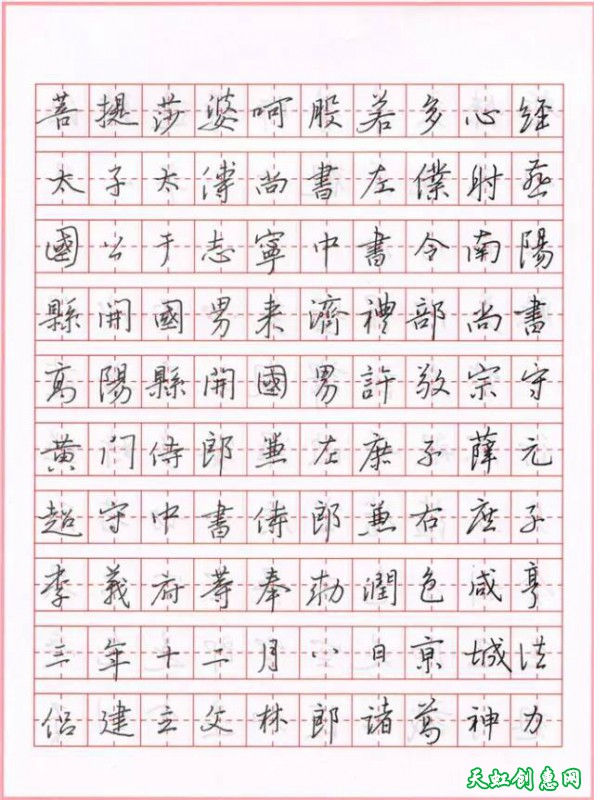 菩提莎婆呵般若多心經
太子太傅尚書左僕射燕
國公于志寧中書令南陽
縣開國男来濟禮部尚書
高陽縣開國男許敬宗守
黄门侍郎兼左庶子薛元
超守中書侍郎兼右庶子
李義府等奉勅潤色咸亨
三年十二月八日京城法
侣建立文林郎諸葛神力
天虹创意网